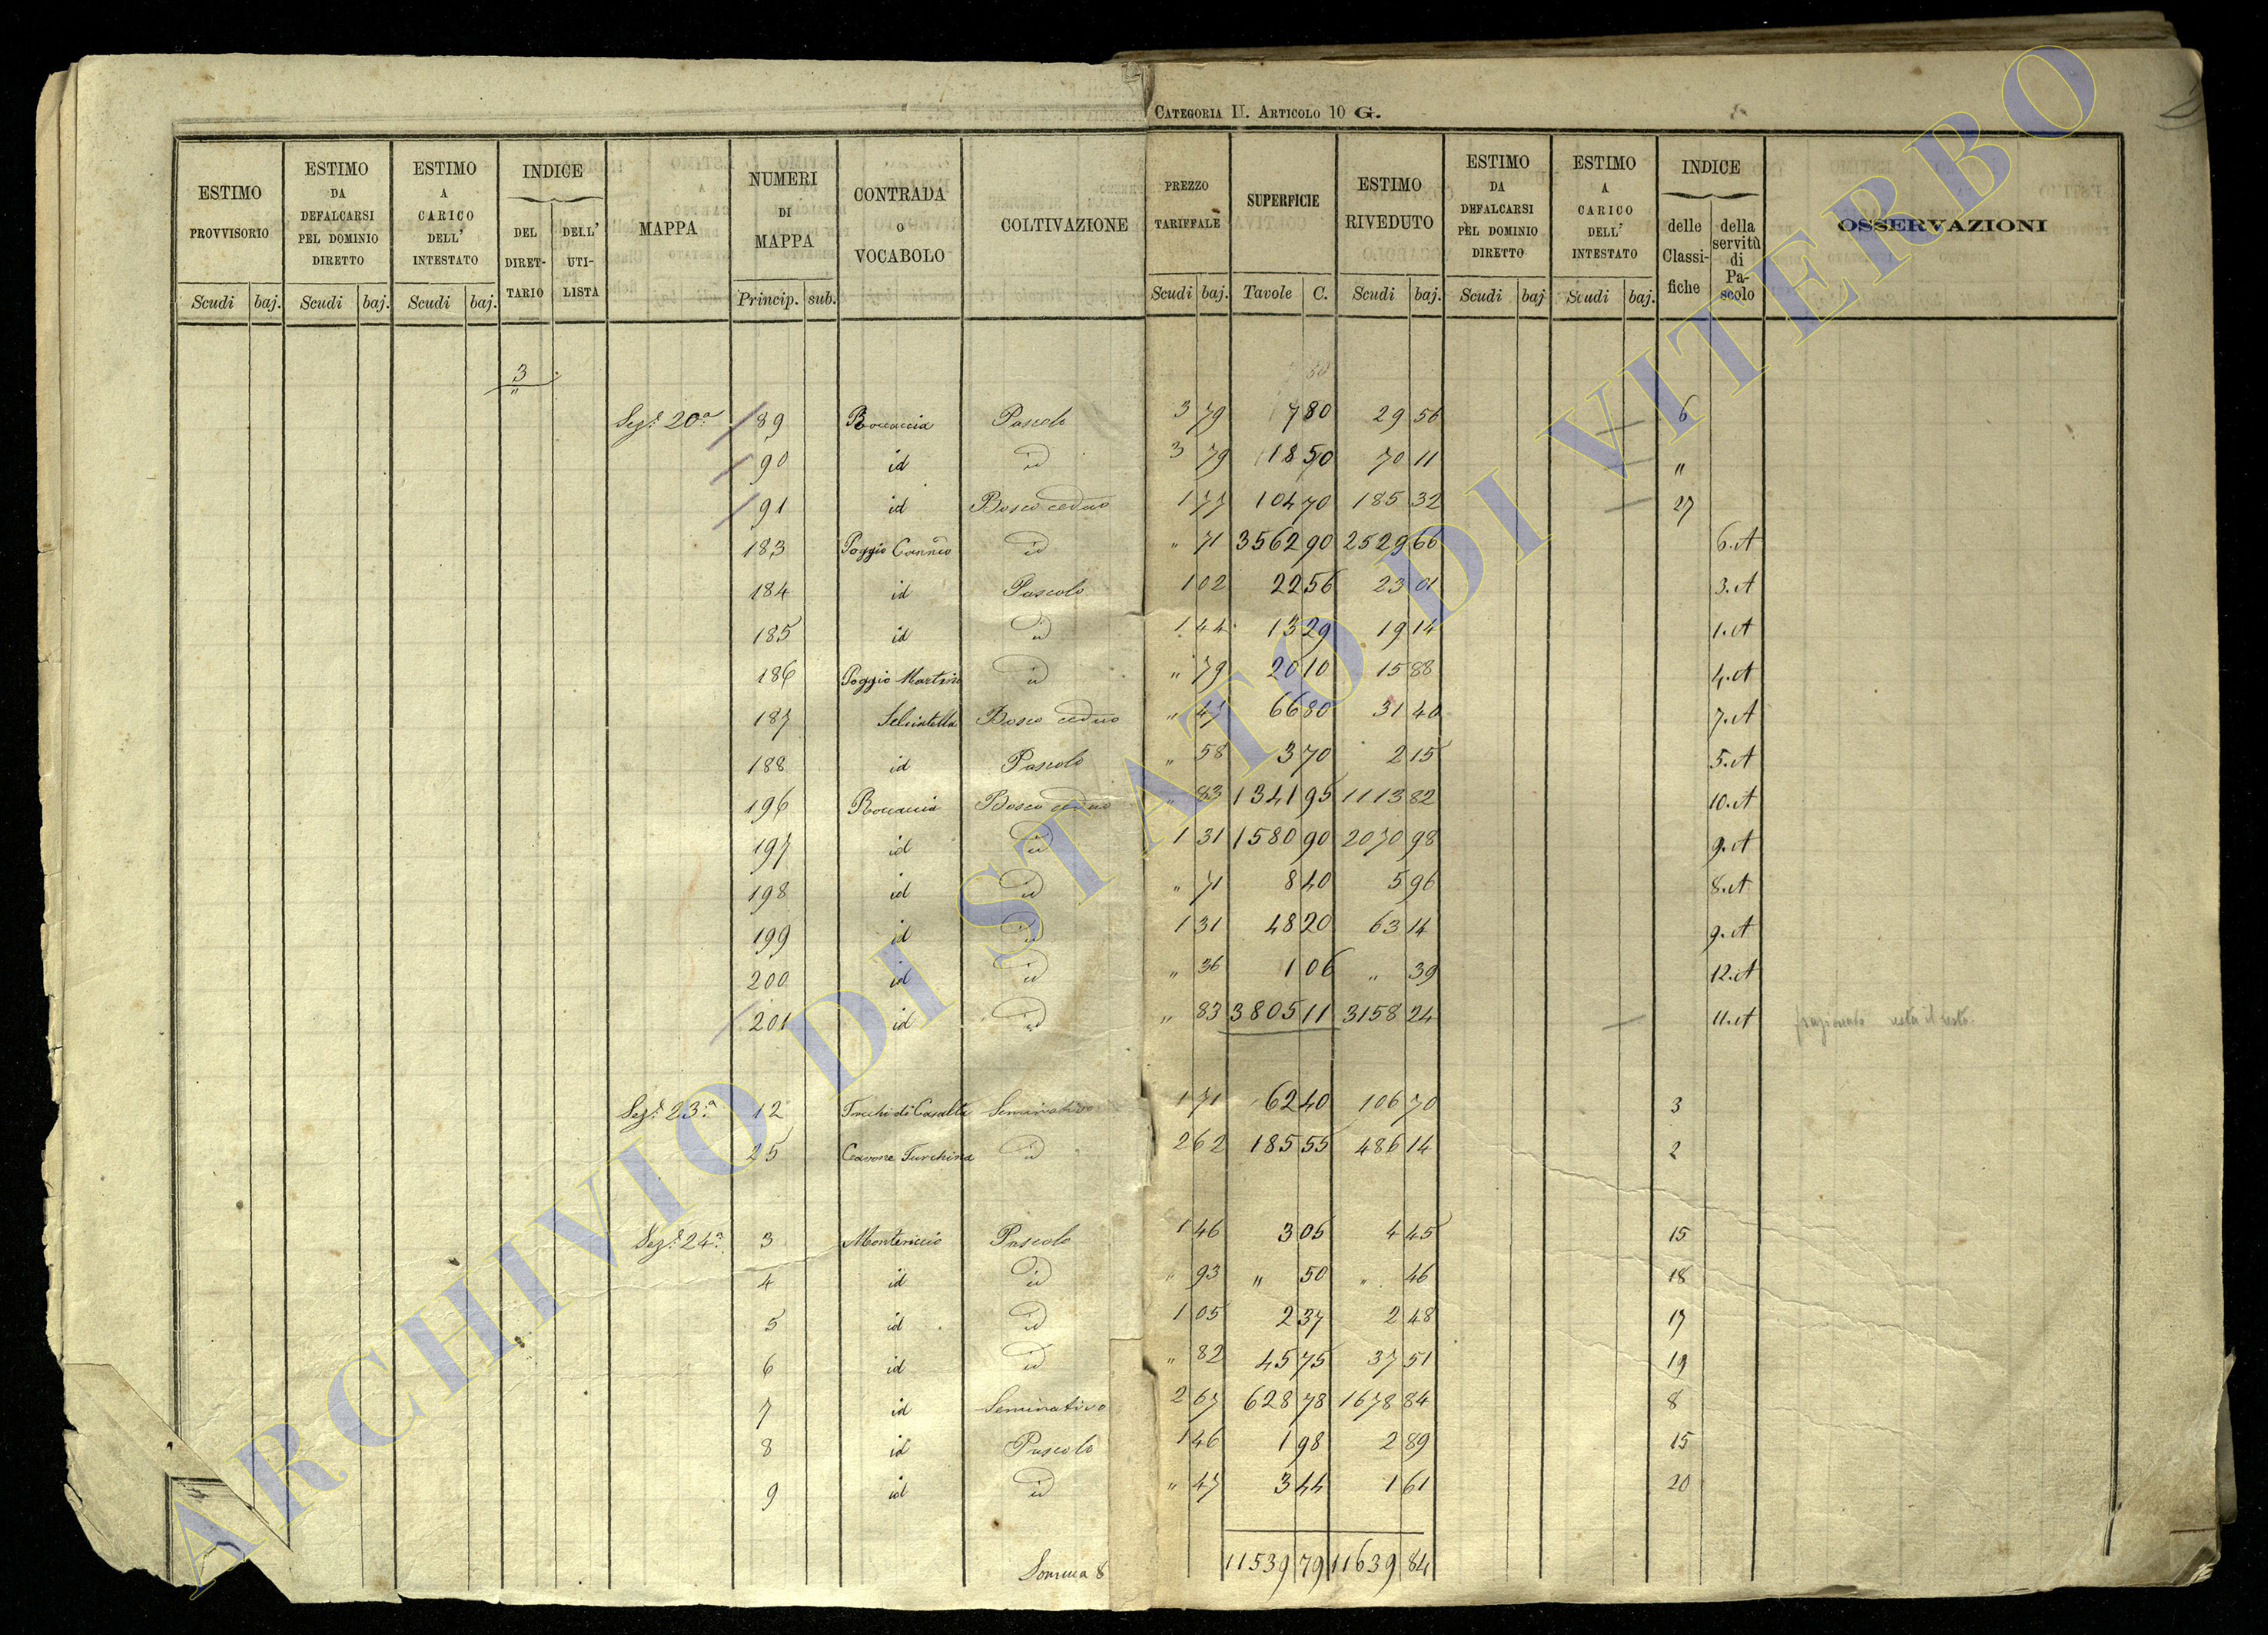 CATEGORIA II. ARTICOLO 10 G.
ESTIMO PROVVISORIO Scudi baj.
ESTIMO DA DEFALCARSI PEL DOMINIO DIRETTO Scudi baj.
ESTIMO A CARICO DELL' INTESTATO Scudi baj.
INDICE DEL DIRETTARIO DELL' UTILISTA
MAPPA
NUMERI DI MAPPA Princip. sub.
CONTRADA o VOCABOLO
COLTIVAZIONE
PREZZO TARIFFALE Scudi baj.
SUPERFICIE Tavole C.
ESTIMO RIVEDUTO Scudi baj.
ESTIMO DA DEFALCARSI PEL DOMINIO DIRETTO Scudi baj
ESTIMO A CARICO DELL' INTESTATO Scudi baj.
INDICE delle Classifiche della servitù di Pascolo
OSSERVAZIONI
3
"
Sez.e 20a 89 Roccaccia Pascolo 3 79 7 80 29 56 6
90 id id 3 79 18 50 70 11 "
91 id Bosco ceduo 1 77 104 70 185 32 27
183 Poggio id " 71 3562 90 2529 66 6.A
184 id Pascolo 1 02 22 56 23 01 3.A
185 id id 1 44 13 29 19 14 1.A
186 Poggio Martino id " 79 20 10 15 88 4.A
187 Selciatella Bosco ceduo " 47 66 80 31 40 7.A
188 id Pascolo " 58 3 70 2 15 5.A
196 Roccaccia Bosco ceduo " 83 1341 95 1113 82 10.A
197 id id 1 31 1580 90 2070 98 9.A
198 id id " 71 8 40 5 96 8.A
199 id id 1 31 48 20 63 14 9.A
200 id id " 36 1 06 " 39 12.A
201 id id " 83 3805 11 3158 24 11.A resta il resto
Sez.e 23.a 12 Seminativo 1 71 62 40 106 70 3
25 Cavone Turchina id 2 62 185 55 486 14 2
Sez.e 24a 3 Montericcio Pascolo 1 46 3 05 4 45 15
4 id id " 93 " 50 " 46 18
5 id id 1 05 2 37 2 48 17
6 id id " 82 45 75 37 51 19
7 id Seminativo 2 67 628 78 1678 84 8
8 id Pascolo 1 46 1 98 2 89 15
9 id id " 47 3 44 1 61 20
Somma 8 11539 79 11639 84
ARCHIVIO DI STATO DI VITERBO